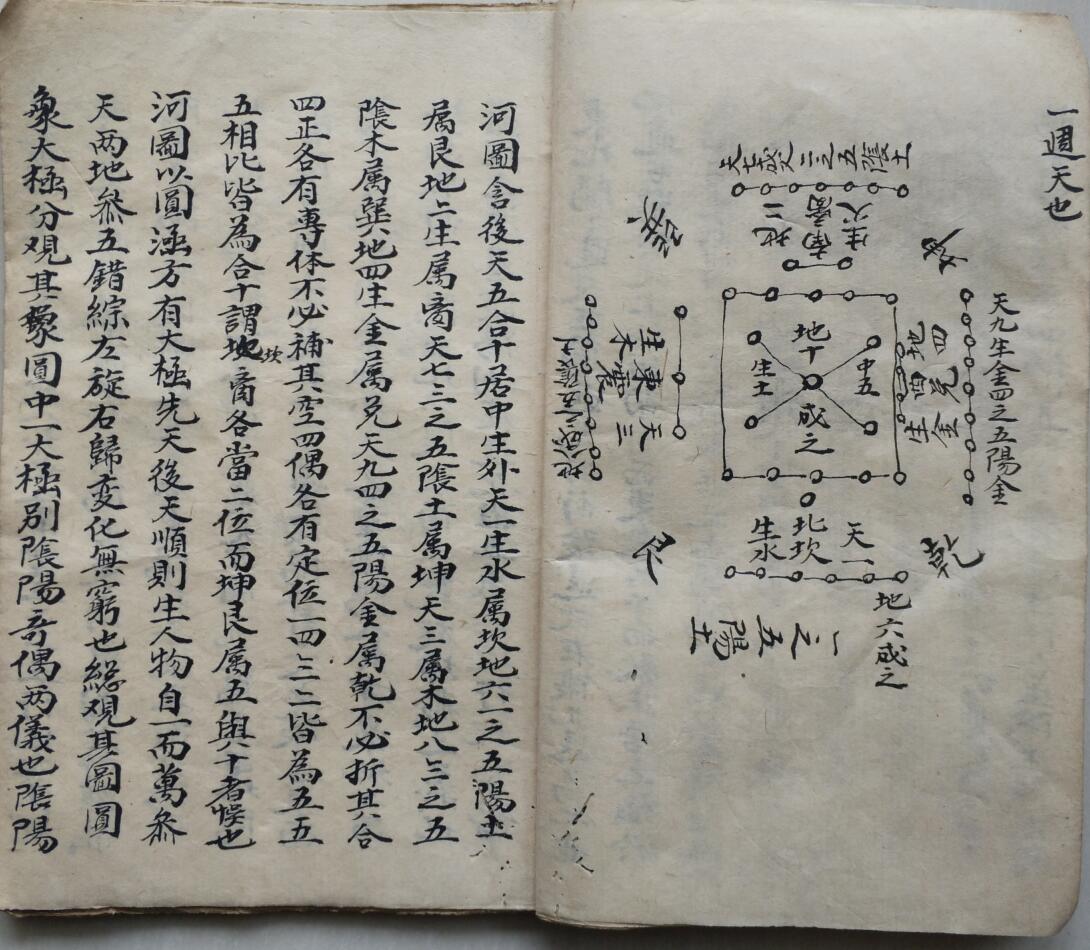 一週天也
天七成之二之五陰土
地二
南离
生火
巽
坤
天九生金四之五陽金
地四
西兌
生金
地十
成之
中五
生土
天三
東震
生木
地八成之
天一
北坎
生水
地六成之
一之五陽土
艮
乾
河圖含後天五合十居中生外天一生水属坎地六一之五陽土
属艮地上生属离天七三之五陰土属坤天三属木地八三之五
陰木属巽地四生金属兌天九四之五陽金属乾不必折其合
四正各有專体不必補其空四偶各有定位一四三二皆為五五
五相比皆為合十謂坎离各當二位而坤艮属五與十者悮也
河圖以圓涵方有大極先天後天順則生人物自一而萬叅
天两地叅五錯綜左旋右歸变化無窮也縂观其圖圓
象大極分观其象圓中一大極别陰陽奇偶两儀也陰陽